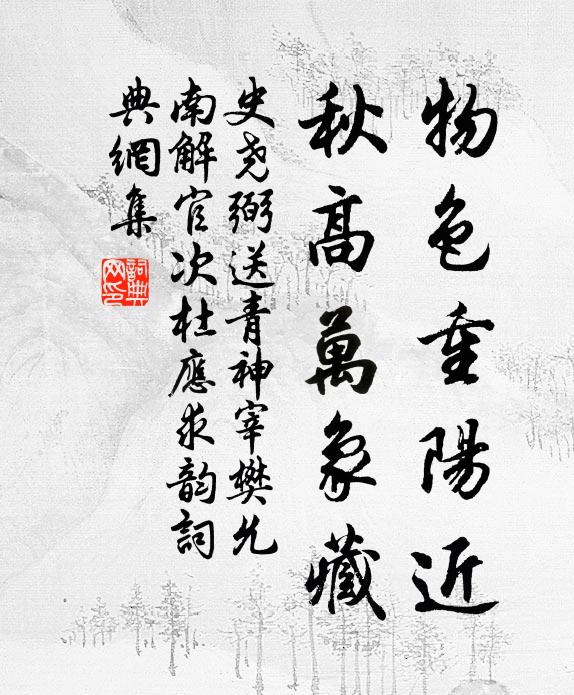 物色重陽近
秋高萬象藏
史堯弼送青神宰樊允
南解官次杜應求韵詞
典網集
詞典
网印